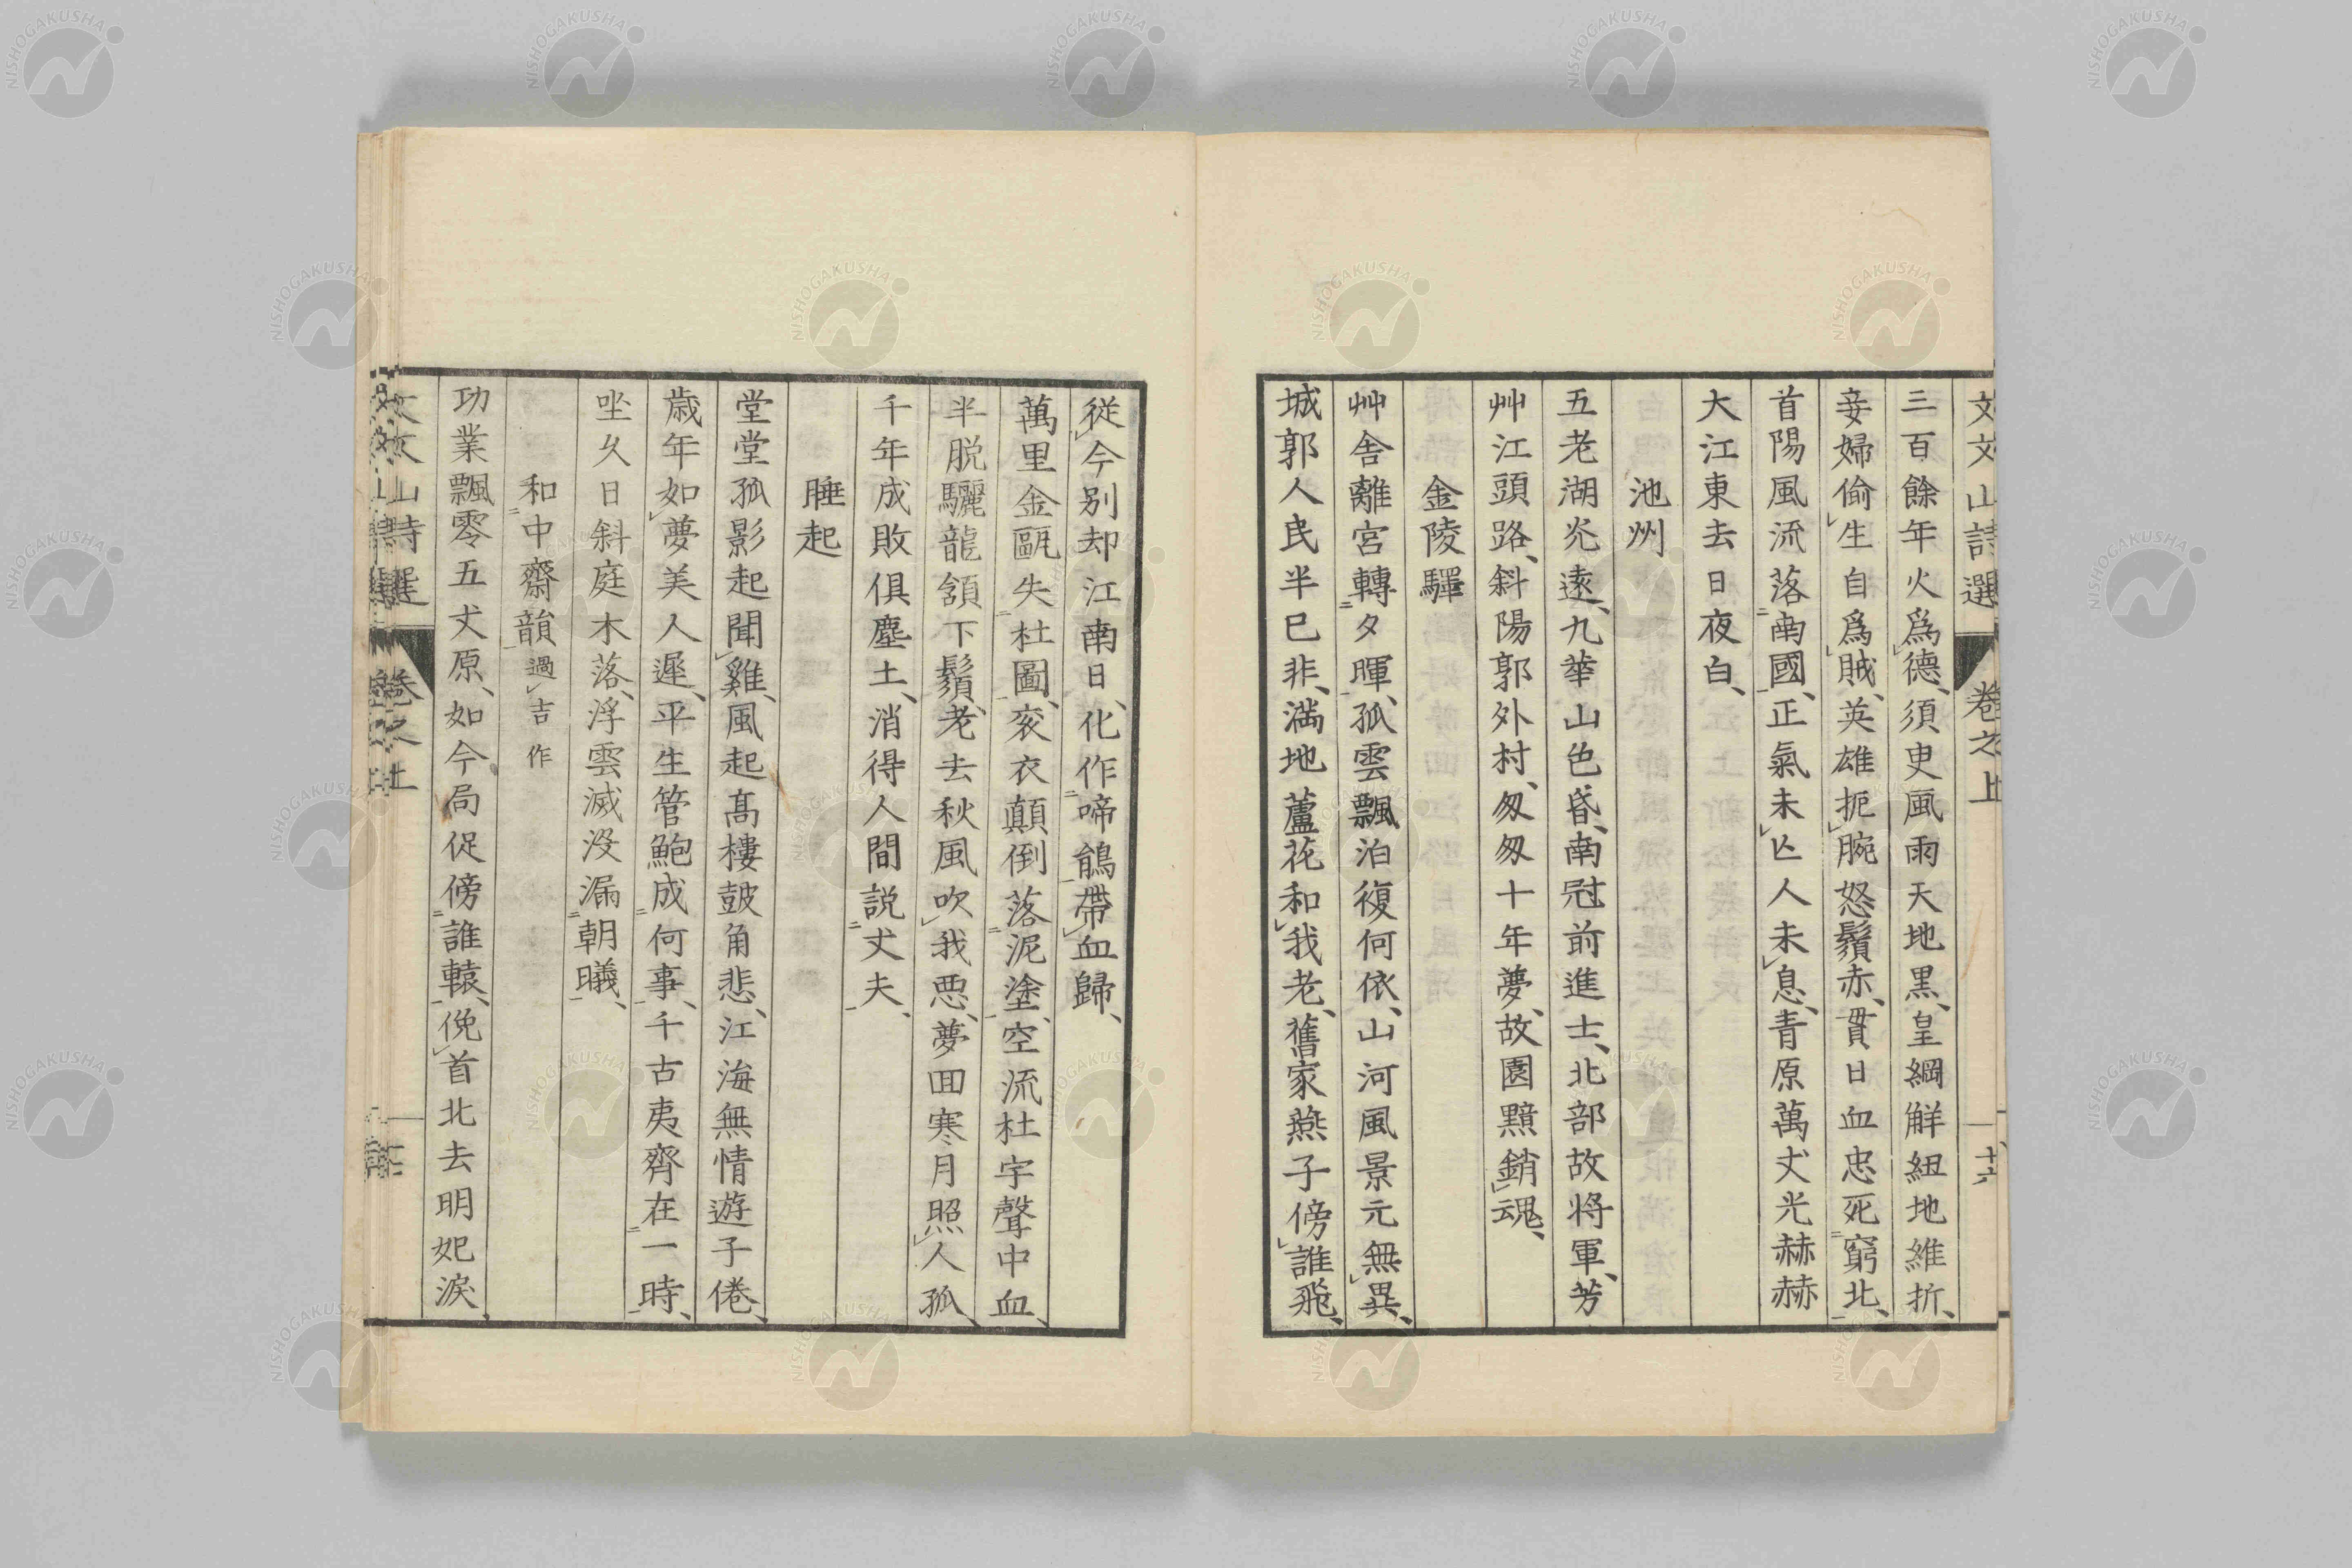 文文山詩選 卷之上 十六
三百餘年火爲德、須臾風雨天地黒、皇綱觧紐地維折、
妾婦偷生自爲賊、英雄扼腕怒鬚赤、貫日血忠死窮北、
首陽風流落南國、正氣未亾人未息、青原萬丈光赫赫
大江東去日夜白、
池州
五老湖光遠、九華山色昏、南冠前進士、北部故将軍、芳
艸江頭路、斜陽郭外村、匆匆十年夢、故園黯銷魂、
金陵驛
艸舍離宮轉夕暉、孤雲飄泊複何依、山河風景元無異、
城郭人民半已非、満地蘆花和我老、舊家燕子傍誰飛、
從今別却江南日、化作啼鵑帶血歸、
萬里金甌失杜圖、衮衣顛倒落泥塗、空流杜宇聲中血、
半脱驪龍頷下鬚、老去秋風吹我悪、夢囬寒月照人孤、
千年成敗俱塵土、消得人間説丈夫、
睡起
堂堂孤影起聞雞、風起髙樓鼓角悲、江海無情遊子倦、
歳年如夢美人遲、平生管鮑成何事、千古夷齊在一時、
坐久日斜庭木落、浮雲滅没漏朝曦、
和中齋韻 過吉作
功業飄零五丈原、如今局促傍誰轅、俛首北去明妃淚、
文文山詩選 卷之上